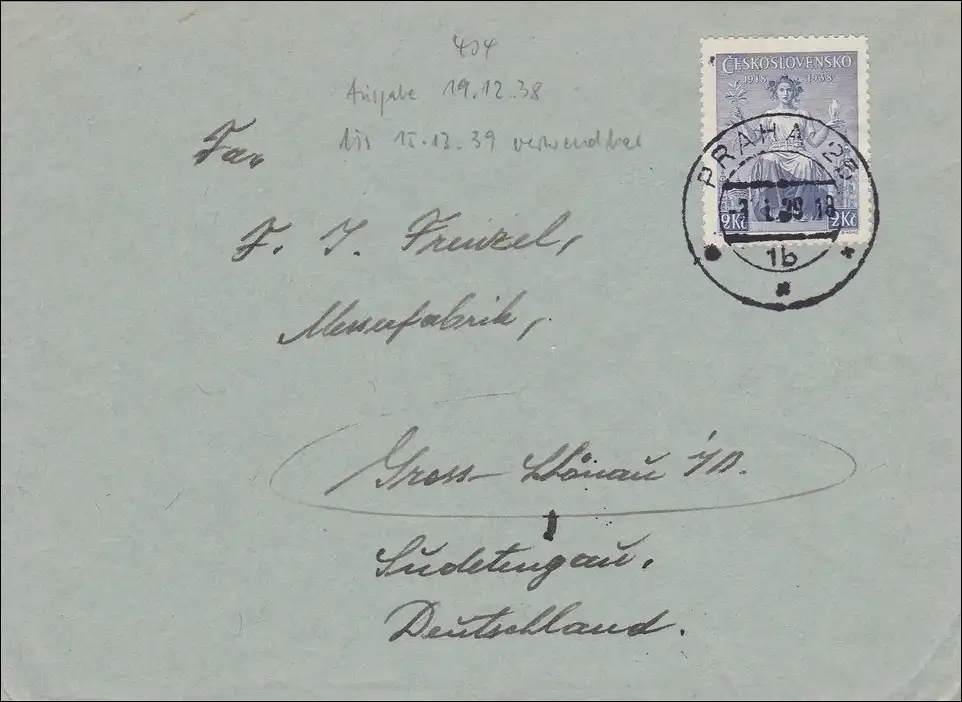 404
Ausgabe 19.12.38
bis 15.12.39 verwendbar
ČESKOSLOVENSKO
1918 1938
2Kč 2Kč
PRAHA 26
39 18
1b
Fa.
F. J. Frenzel,
Messerfabrik,
Gross-Schönau
Sudetengau,
Deutschland.